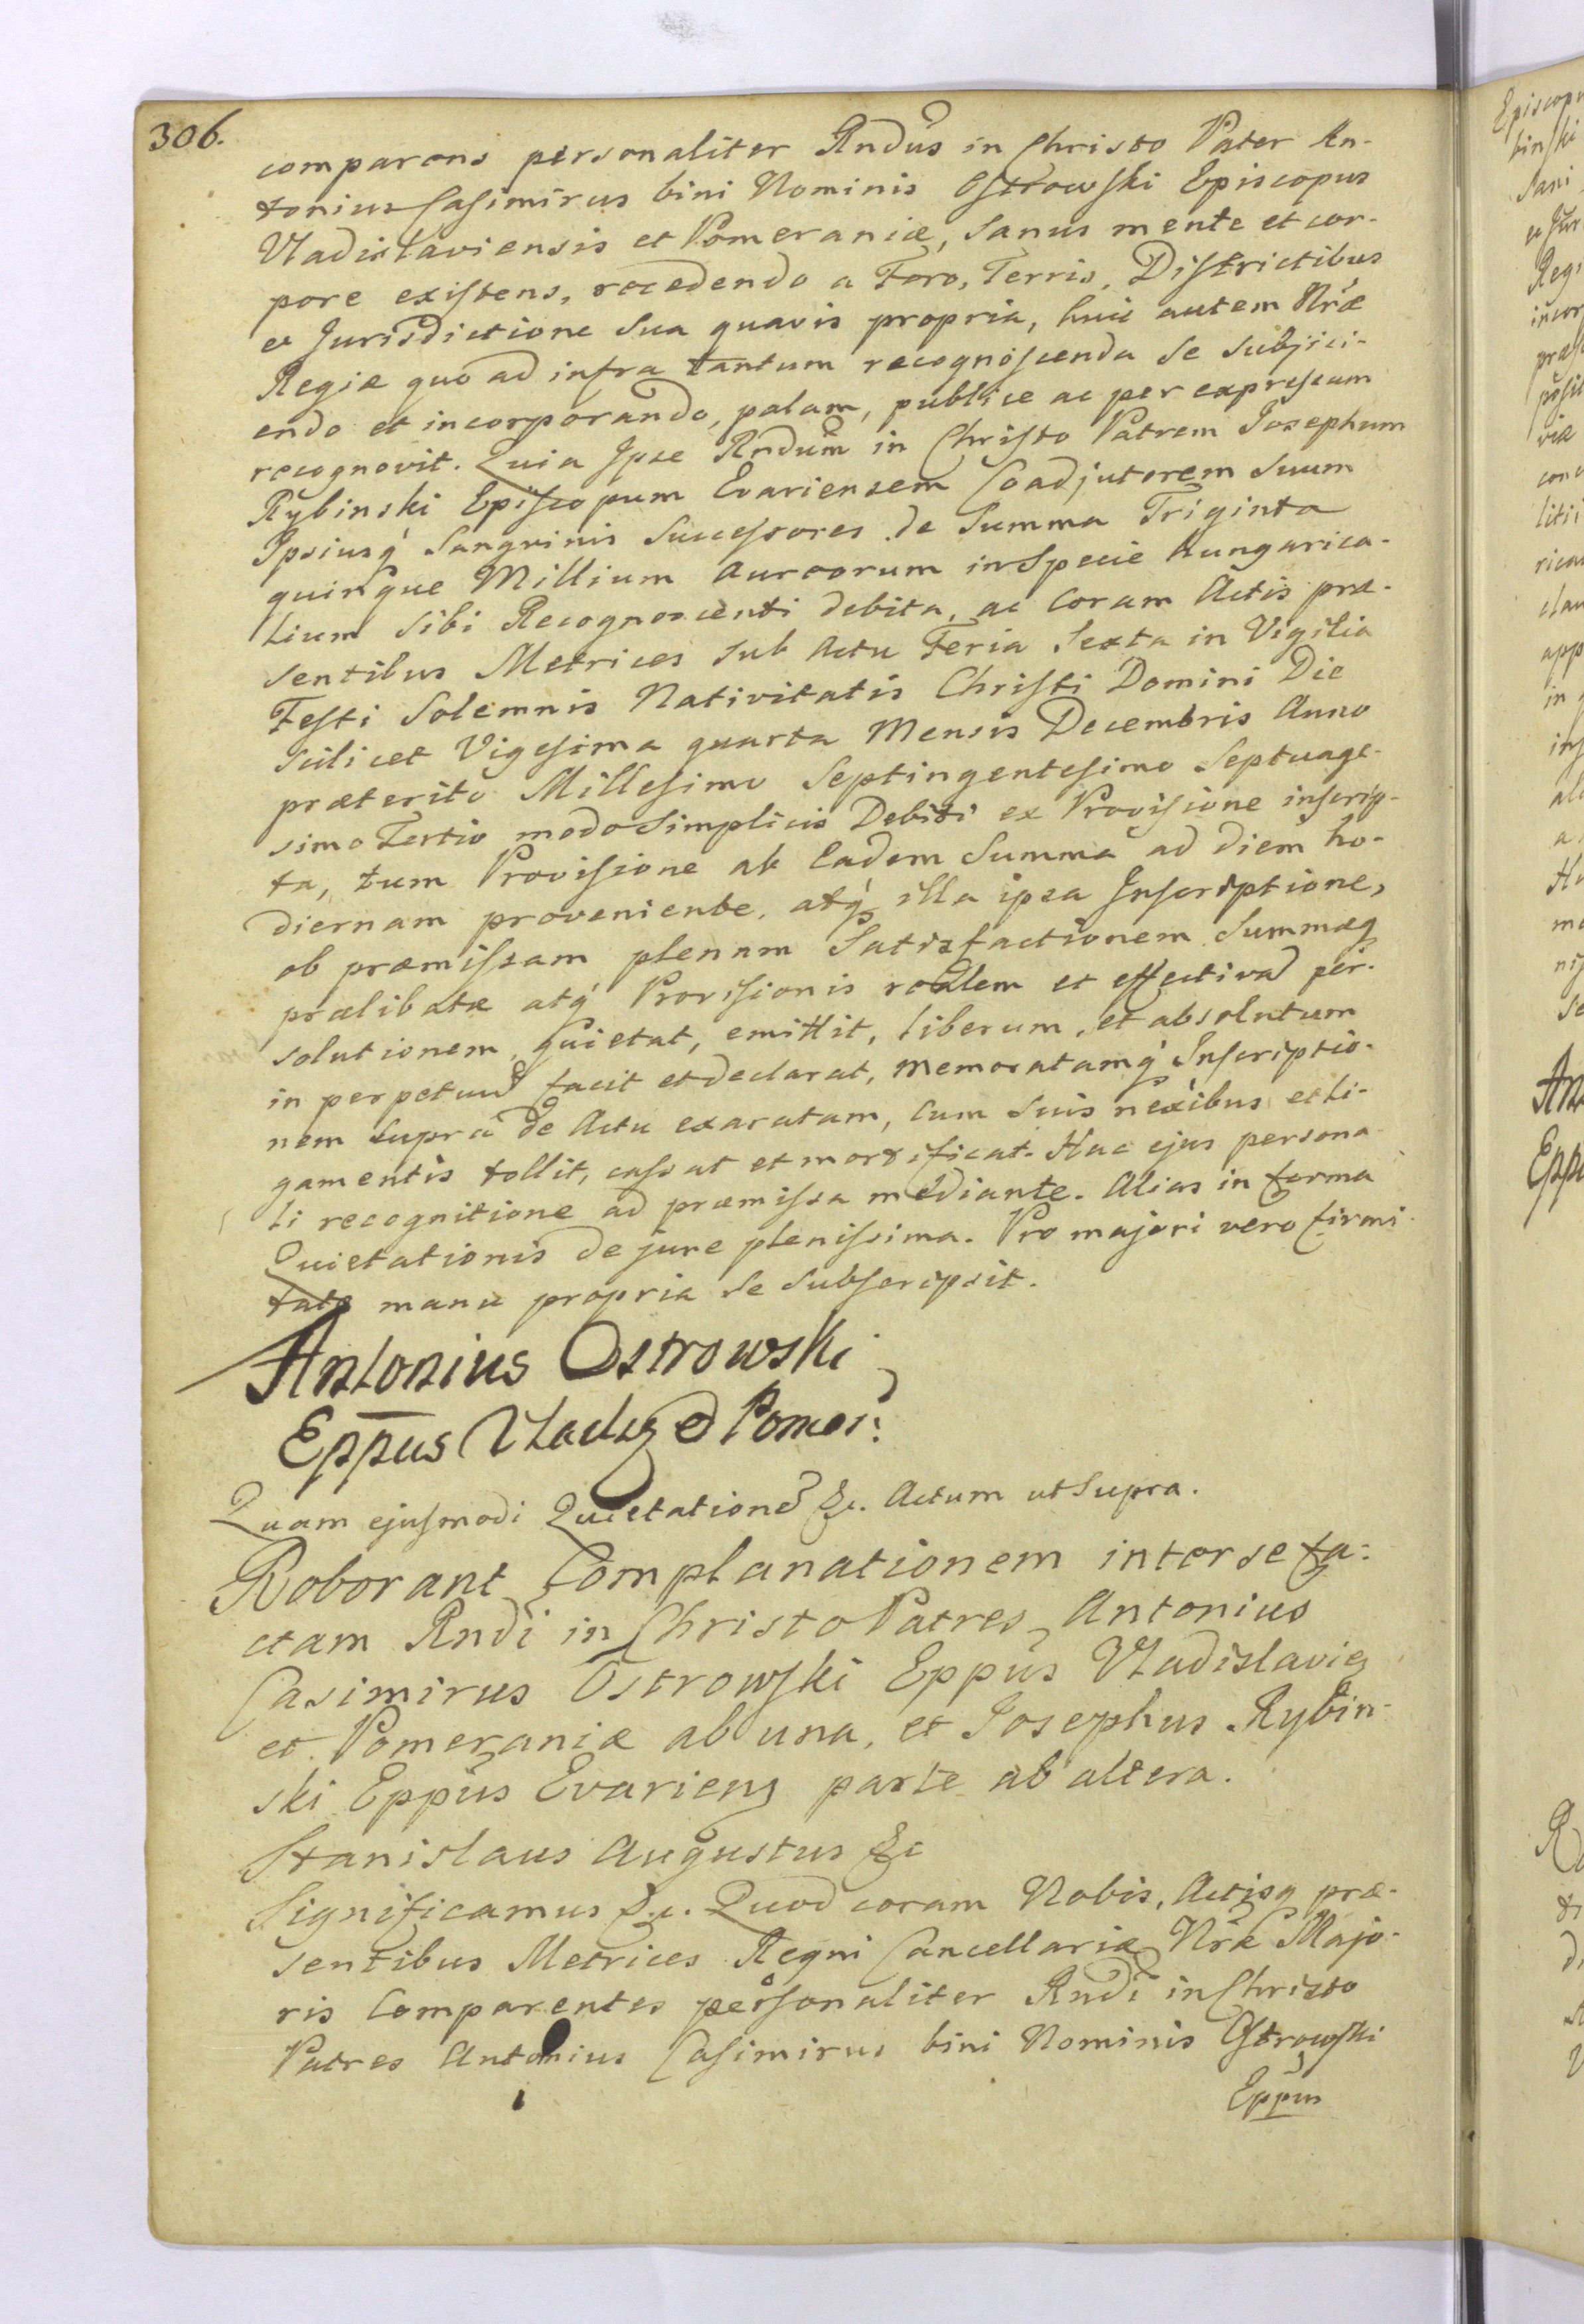 306.
comparens personaliter Rndus in Christo Pater An-
tonius Casimirus bini Nominis Ostrowski Episcopus
Vladislaviensis et Pomeraniæ, Sanus mente et cor-
pore existens, recedendo a Foro, Terris, Districtibus
et Jurisdictione Sua quavis propria, huic autem Nræ
Regiæ quo ad infra tantum recognoscenda se subjici-
endo et incorporando, palam, publice ac per expressum
recognovit. Quia Ipse Rndum in Christo Patrem Josephum
Rybinski Episcopum Evariensem Coadjutorem Suum
Ipsiusq Sangvinis Successores de Summa Triginta
quinque Millium Aureorum in Specie Hungarica-
lium Sibi Recognoscenti debita, ac coram Actis præ-
sentibus Metrices sub Actu Feria Sexta in Vigilia
Festi Solemnis Nativitatis Christi Domini Die
scilicet Vigesima quarta Mensis Decembris Anno
præterito Millesimo Septingentesimo Septuage-
simo Tertio modo Simplicis Debiti ex Provisione inscrip-
ta, tum Provisione ab eadem Summa ad diem ho-
diernam proveniente, atq illa ipsa Inscriptione,
ob præmissam plenam Satisfactionem Summæq
prælibatæ atq Provisionis realem et effectivã per-
solutionem, quietat, emittit, liberum, et absolutum
in perpetuũ facit et declarat, memoratamq Inscriptio-
nem supra de Actu exaratam, cum suis nexibus et li-
gamentis tollit, cassat et mortificat. Hac ejus persona-
li recognitione ad præmissa mediante. Alias in forma
Quietationis de jure plenissima. Pro majori vero firmi-
tate manu propria se Subscripsit.
Antonius Ostrowski
Eppus Vladis et Pomer:
Quam ejusmodi Quietationẽ &c. Actum ut Supra.
Roborant Complanationem inter se fa-
ctam Rndi in Christo Patres, Antonius
Casimirus Ostrowski Eppus Vladislavien
et Pomeraniæ ab una, et Josephus Rybin-
ski Eppus Evarien parte ab altera.
Stanislaus Augustus &c
Significamus &c. Quod coram Nobis, Actisq præ-
sentibus Metrices Regni Cancellariæ Nræ Majo-
ris Comparentes personaliter Rndi in Christo
Patres Antonius Casimirus bini Nominis Ostrowski
Eppus